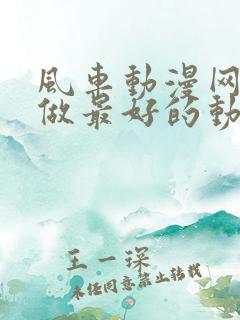 风车動漫网
做最好的動
王一琛
未经同意禁止转载